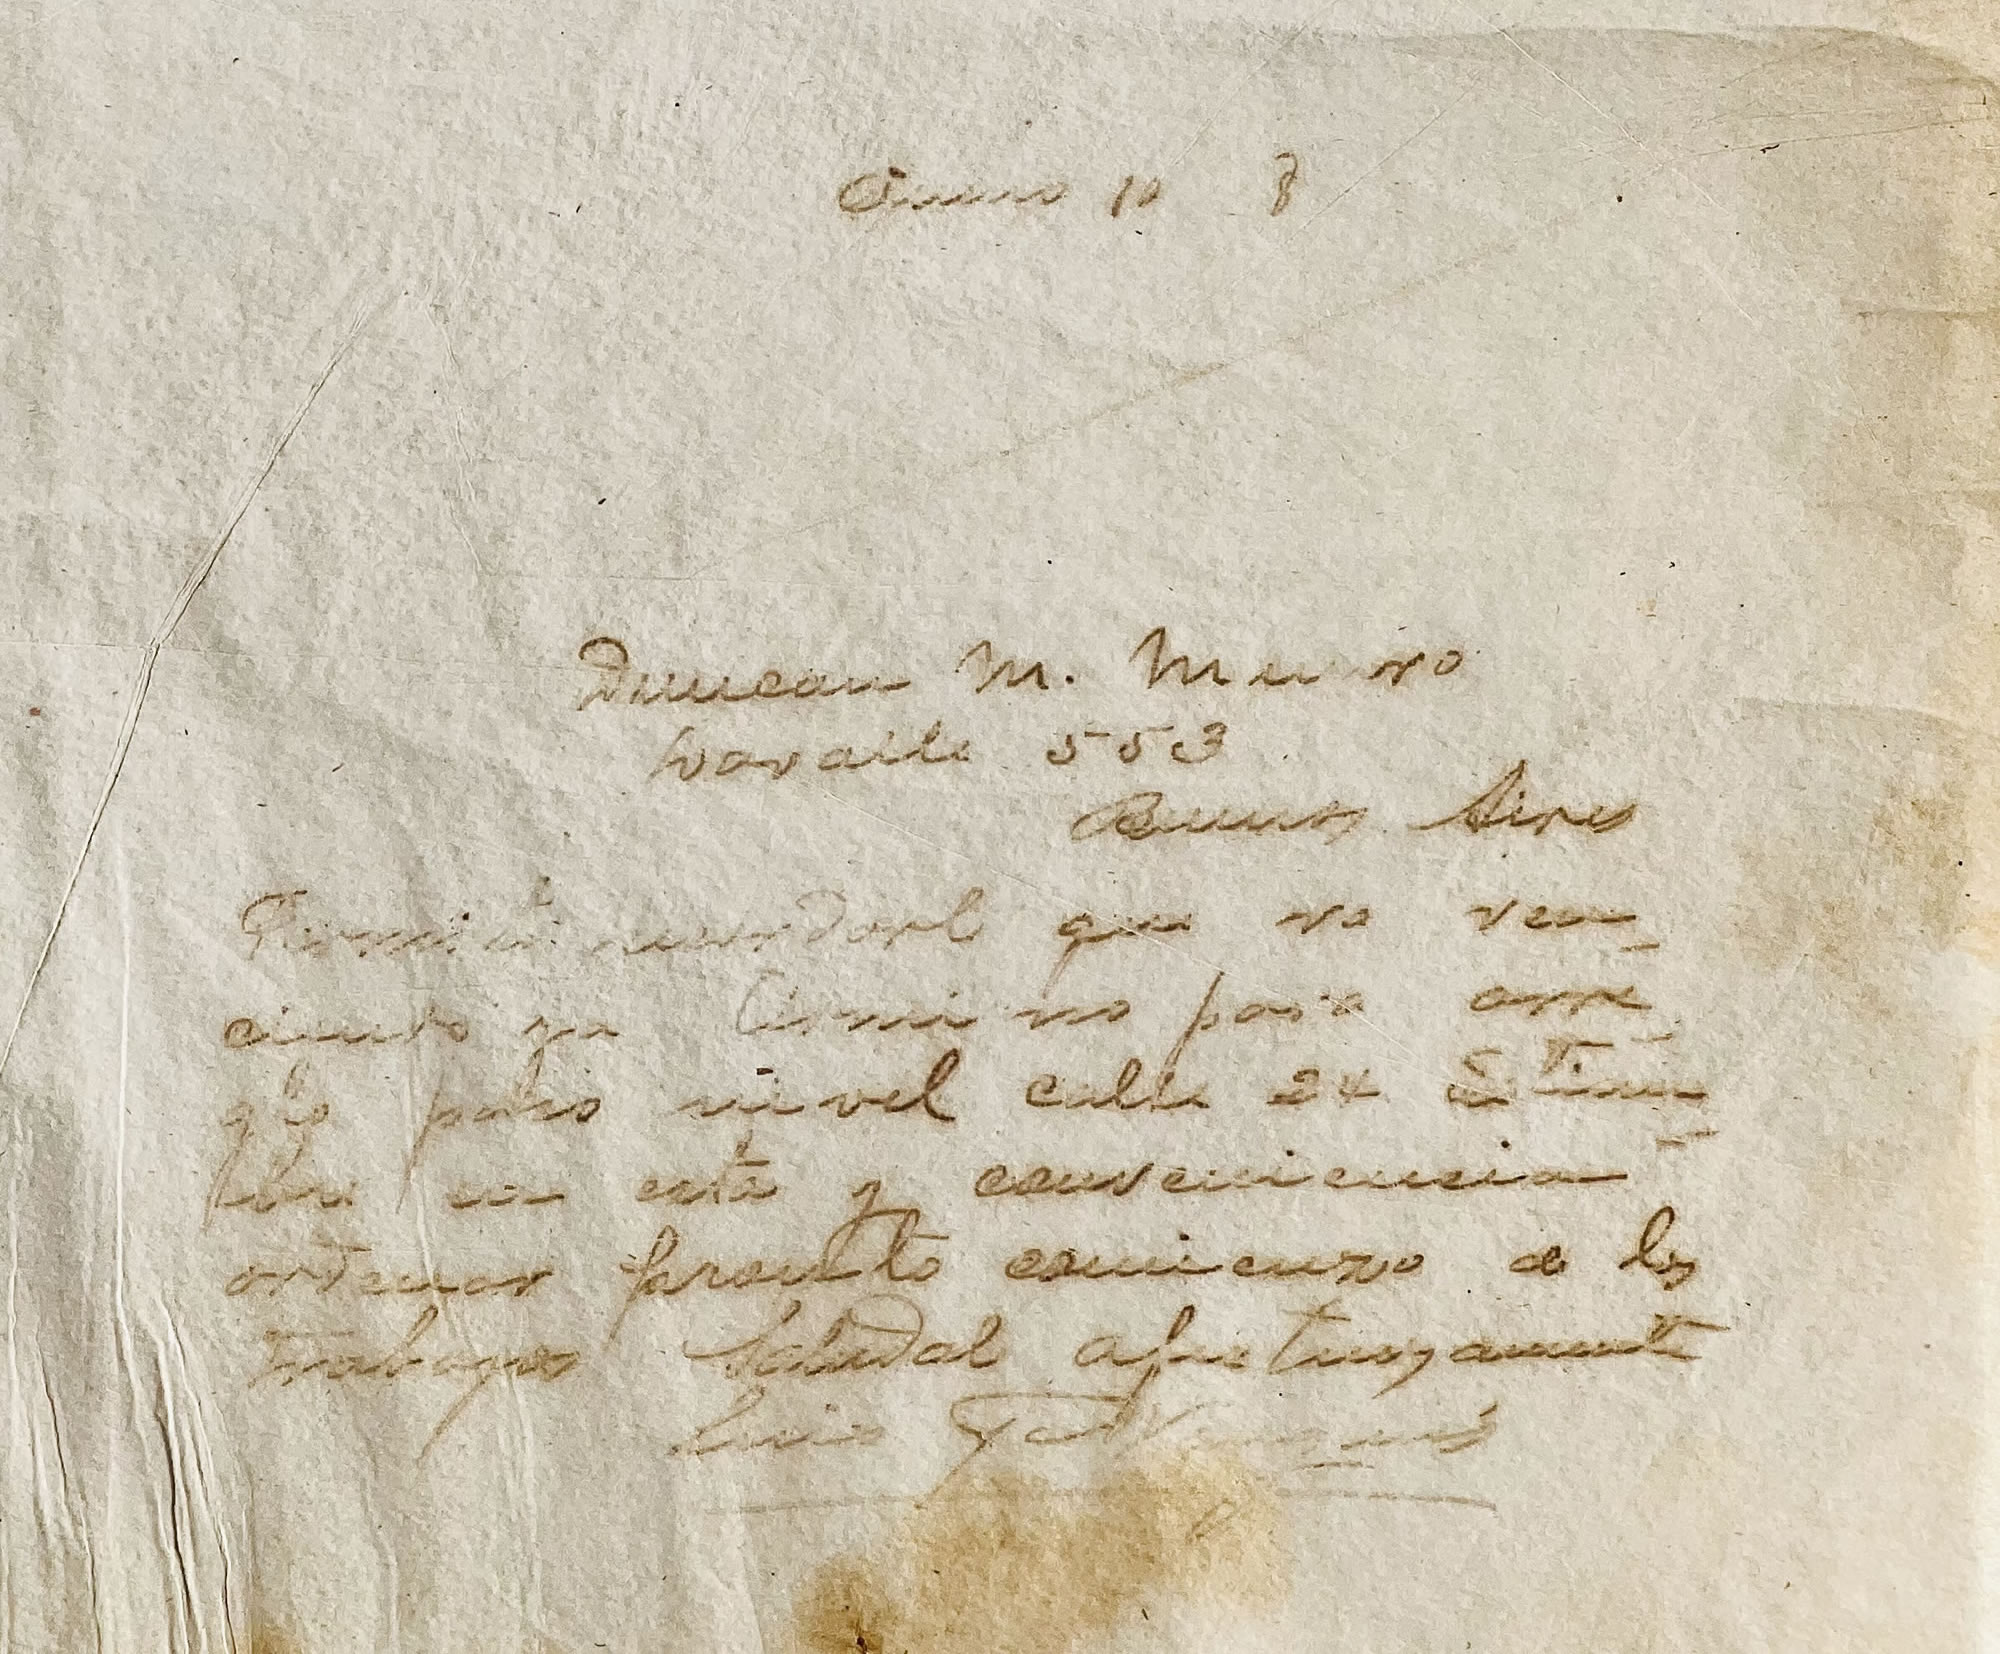 Enero 10 8
Duncan M. Munro
Lavalle 553
Buenos Aires
recordarle que va ven
ciendo ya termino para arre
glo paso nivel calle 24
en esta y conveniencia
ordenar pronto comienzo de los
trabajos Saludal afectuosamente
Luis